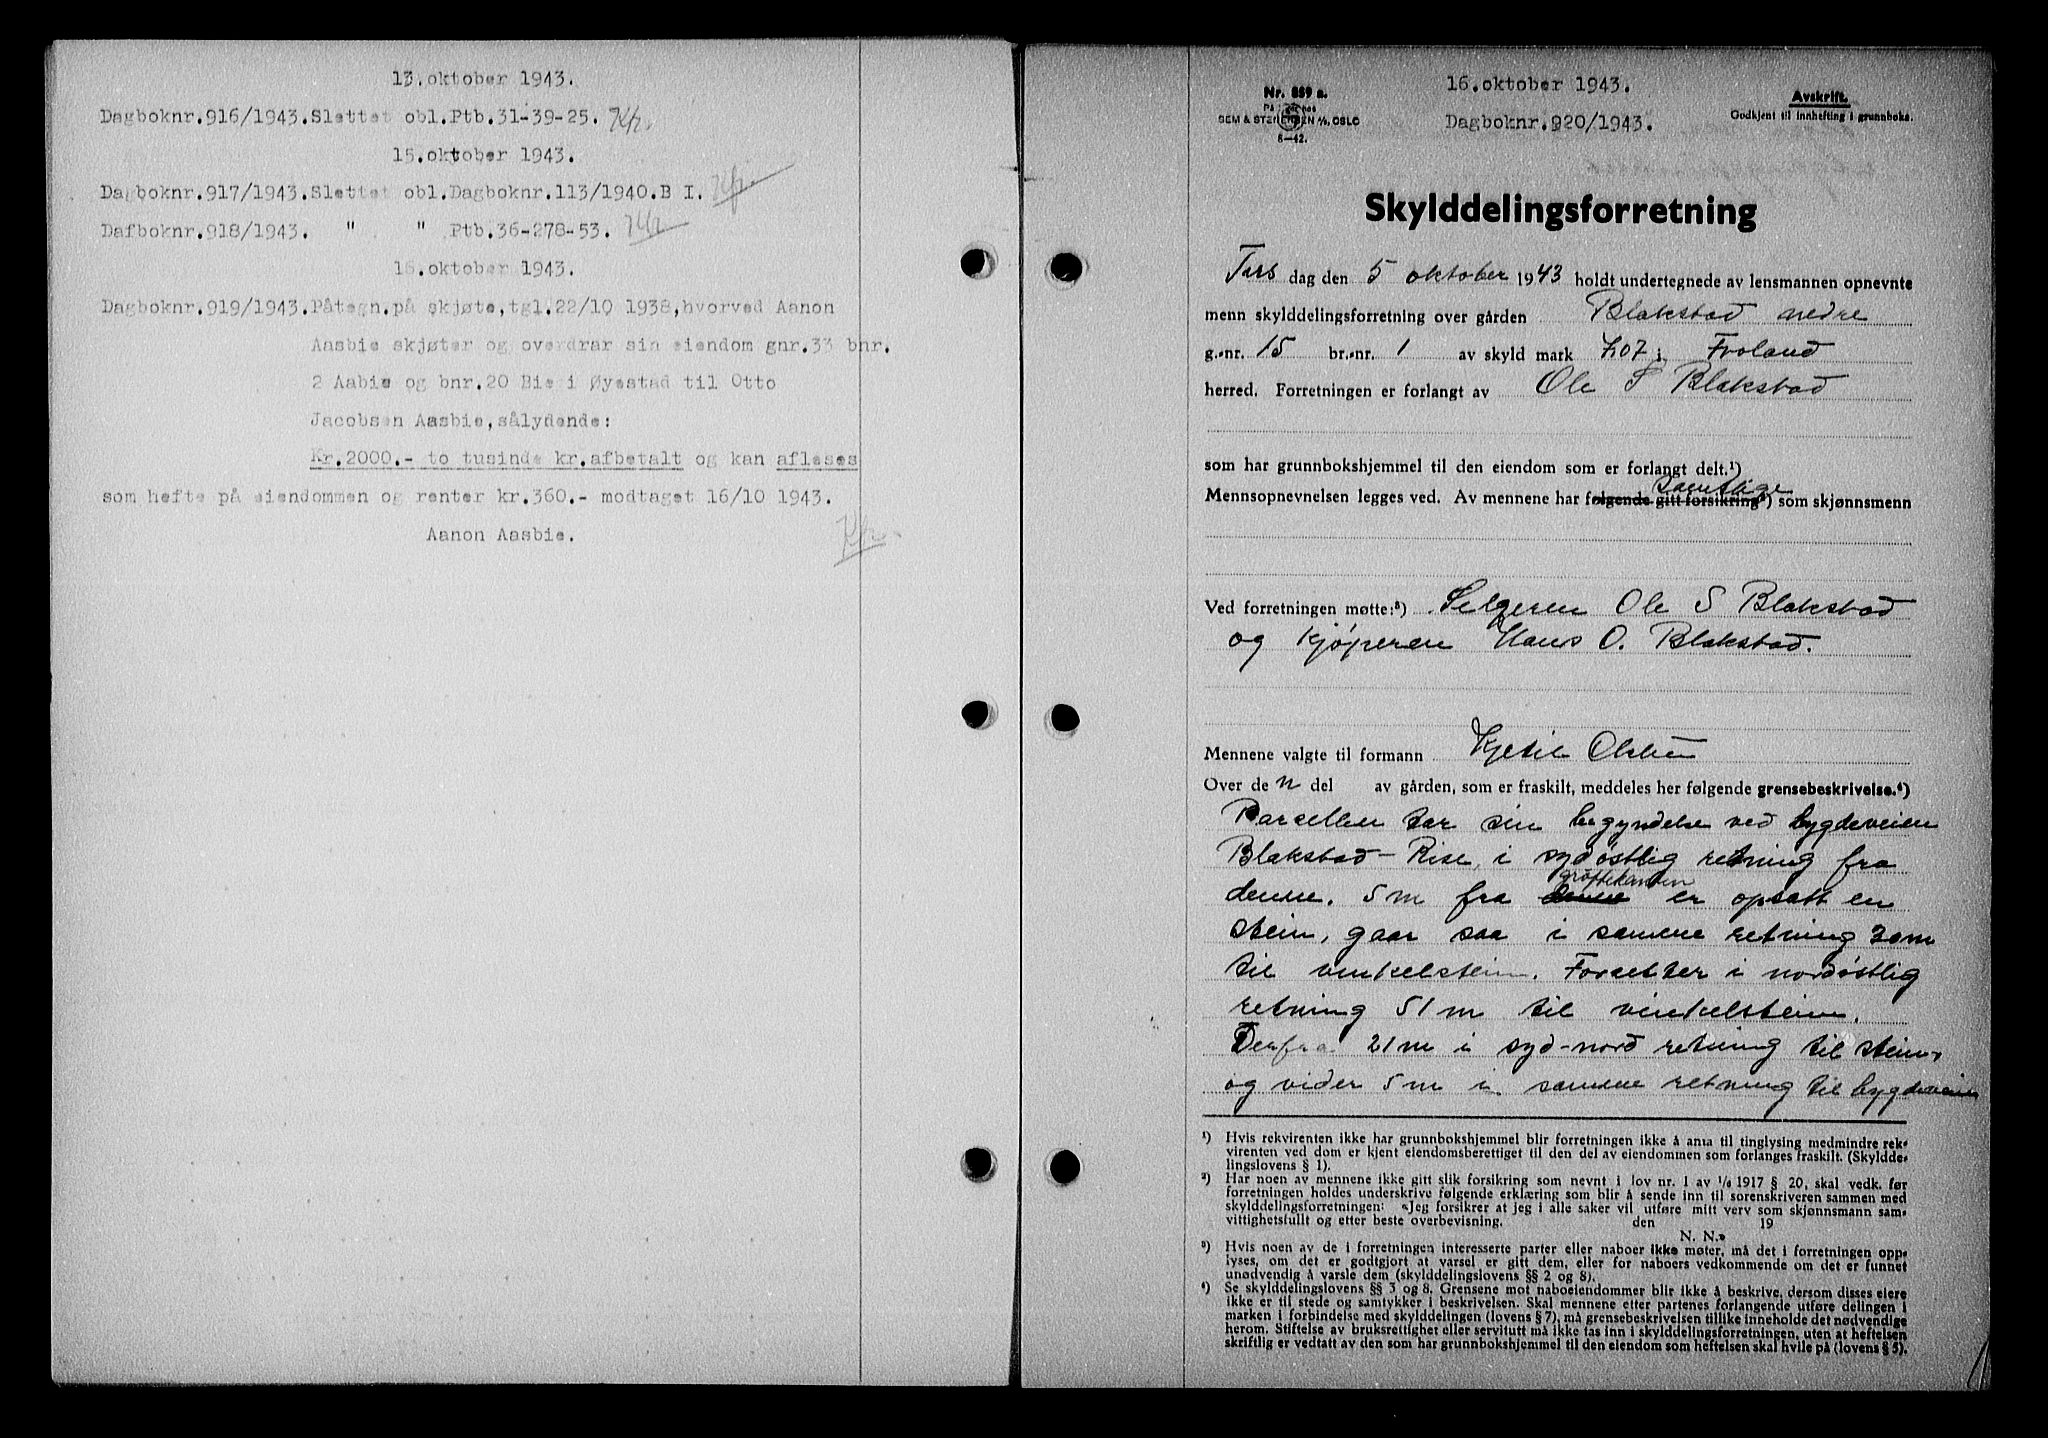 13.oktober 1943.
Dagboknr.916/1943.Slettet obl.Ptb.31-39-25.
15.oktober 1943.
Dagboknr.917/1943.Slettet obl.Dagboknr.113/1940.B I.
Dafboknr.918/1943. " " Ptb.36-278-53.
16.oktober 1943.
Dagboknr.919/1943.Påtegn.på skjøte,tgl.22/10 1938,hvorved Aanon
Aasbie skjøter og overdrar sin eiendom gnr.33 bnr.
2 Aabie og bnr.20 Bie i Øyestad til Otto
Jacobsen Aasbie,sålydende:
Kr.2000.- to tusinde kr.afbetalt og kan afleses
som hefte på eiendommen og renter kr.360.- modtaget 16/10 1943.
Aanon Aasbie.
16.oktober 1943.
Dagboknr.920/1943.
Nr. 859 a.
SEM & STENERSEN A/S, OSLO
8-42.
Avskrift.
Godkjent til innhefting i grunnboka.
Skylddelingsforretning
Tirs dag den 5 oktober 1943 holdt undertegnede av lensmannen opnevnte
menn skylddelingsforretning over gården Blakstad nedre
g.-nr. 15 br.-nr. 1 av skyld mark 7.07 i Froland
herred. Forretningen er forlangt av Ole S Blakstad
som har grunnbokshjemmel til den eiendom som er forlangt delt.¹)
Mennsopnevnelsen legges ved. Av mennene har følgende gitt forsikring²) Samtlige som skjønnsmenn
Ved forretningen møtte:³) Selgeren Ole S Blakstad
og kjøperen Hans O. Blakstad.
Mennene valgte til formann Kjetil Olsbu
Over de n del av gården, som er fraskilt, meddeles her følgende grensebeskrivelse.⁴)
Parsellen tar sin begyndelse ved bygdeveien
Blakstad-Rise, i sydøstlig retning fra
denne. 5 m fra denne grøftekanten er opsatt en
stein, gaar saa i samme retning 30 m
til vinkelstein. Forsetter i nordøstlig
retning 51 m til vinkelstein.
Derfra 21 m i syd-nord retning til stein,
og vider 5 m i samme retning til bygdeveien
¹) Hvis rekvirenten ikke har grunnbokshjemmel blir forretningen ikke å anta til tinglysing medmindre rek-
virenten ved dom er kjent eiendomsberettiget til den del av eiendommen som forlanges fraskilt. (Skyldde-
lingslovens § 1).
²) Har noen av mennene ikke gitt slik forsikring som nevnt i lov nr. 1 av 1/6 1917 § 20, skal vedk. før
forretningen holdes underskrive følgende erklæring som blir å sende inn til sorenskriveren sammen med
skylddelingsforretningen: «Jeg forsikrer at jeg i alle saker vil utføre mitt verv som skjønnsmann sam-
vittighetsfullt og etter beste overbevisning. den 19
N. N.»
³) Hvis noen av de i forretningen interesserte parter eller naboer ikke møter, må det i forretningen opp-
lyses, om det er godtgjort at varsel er gitt dem, eller for naboers vedkommende om det er funnet
unødvendig å varsle dem (skylddelingslovens §§ 2 og 8).
⁴) Se skylddelingslovens §§ 3 og 8. Grensene mot naboeiendommer blir ikke å beskrive, dersom disses eiere
ikke er til stede og samtykker i beskrivelsen. Skal mennene etter partenes forlangende utføre delingen i
marken i forbindelse med skylddelingen (lovens § 7), må grensebeskrivelsen tillike inneholde det nødvendige
herom. Stiftelse av bruksrettighet eller servitutt må ikke tas inn i skylddelingsforretningen, uten at heftelsen
skriftlig er vedtatt av den som har grunnbokshjemmel til den eiendom som heftelsen skal hvile på (lovens § 5).